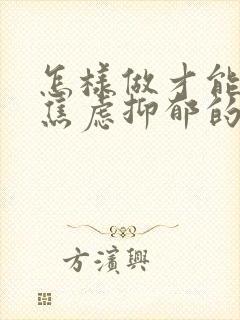 怎樣做才能
焦慮抑郁的
方濱興